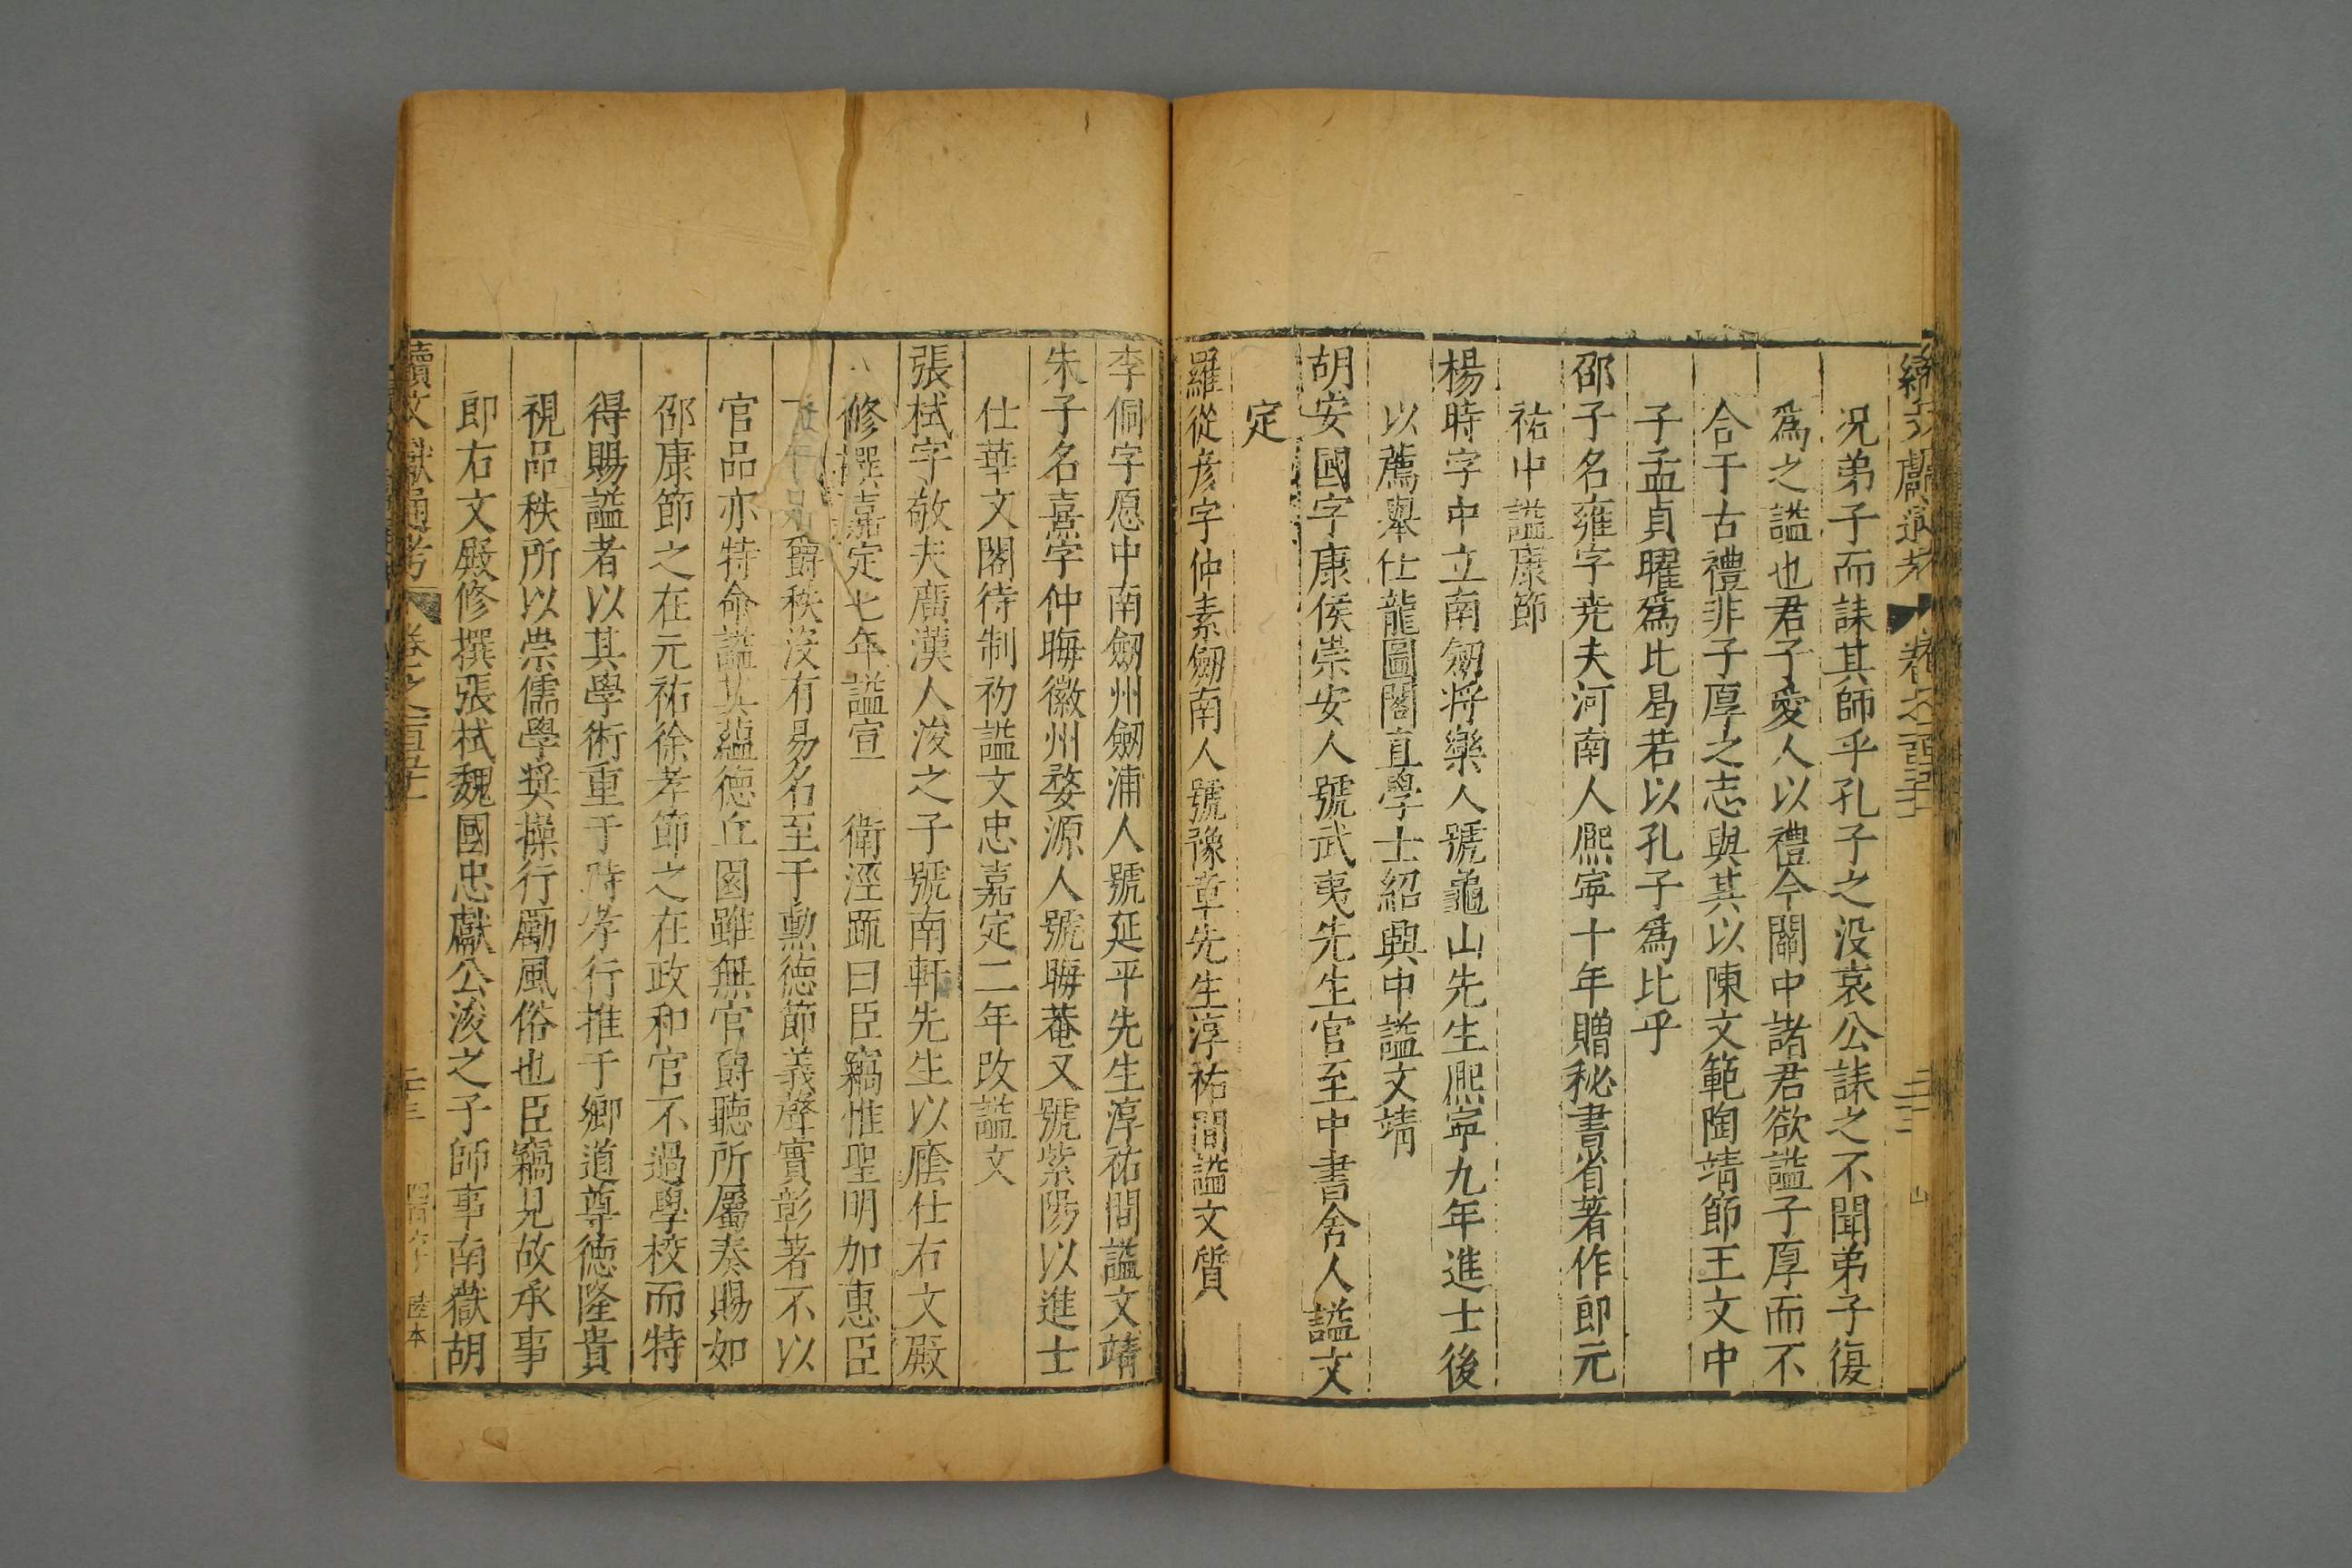 續文獻通考 卷之一百五十 二十二 山
况弟子而誄其師乎孔子之没哀公誄之不聞弟子復
爲之諡也君子愛人以禮今關中諸君欲諡子厚而不
合于古禮非子厚之志與其以陳文範陶靖節王文中
子孟貞曜爲比曷若以孔子爲比乎
邵子名雍字尭夫河南人熈寧十年贈秘書省著作郎元
祐中諡康節
楊時字中立南劒将樂人號龜山先生熈寧九年進士後
以薦舉仕龍圖閣直學士紹興中諡文靖
胡安國字康侯崇安人號武夷先生官至中書舍人諡文
定
羅從彦字仲素劒南人號豫章先生淳祐間諡文質
李侗字愿中南劒州劒浦人號延平先生淳祐間諡文靖
朱子名熹字仲晦徽州婺源人號晦菴又號紫陽以進士
仕華文閣待制初諡文忠嘉定二年改諡文
張栻字敬夫廣漢人浚之子號南軒先生以廕仕右文殿
修撰嘉定七年諡宣 衛涇䟽曰臣竊惟聖明加惠臣
下年爵秩没有易名至于勲徳節義聲實彰著不以
官品亦特命諡其藴徳丘園雖無官爵聽所屬奏賜如
邵康節之在元祐徐孝節之在政和官不過學校而特
得賜諡者以其學術重于時孝行推于鄉道尊徳隆貴
視品秩所以崇儒學奨操行厲風俗也臣竊見故承事
郎右文殿修撰張栻魏國忠獻公浚之子師事南嶽胡
續文獻通考 卷之一百五十 二十三 陸本